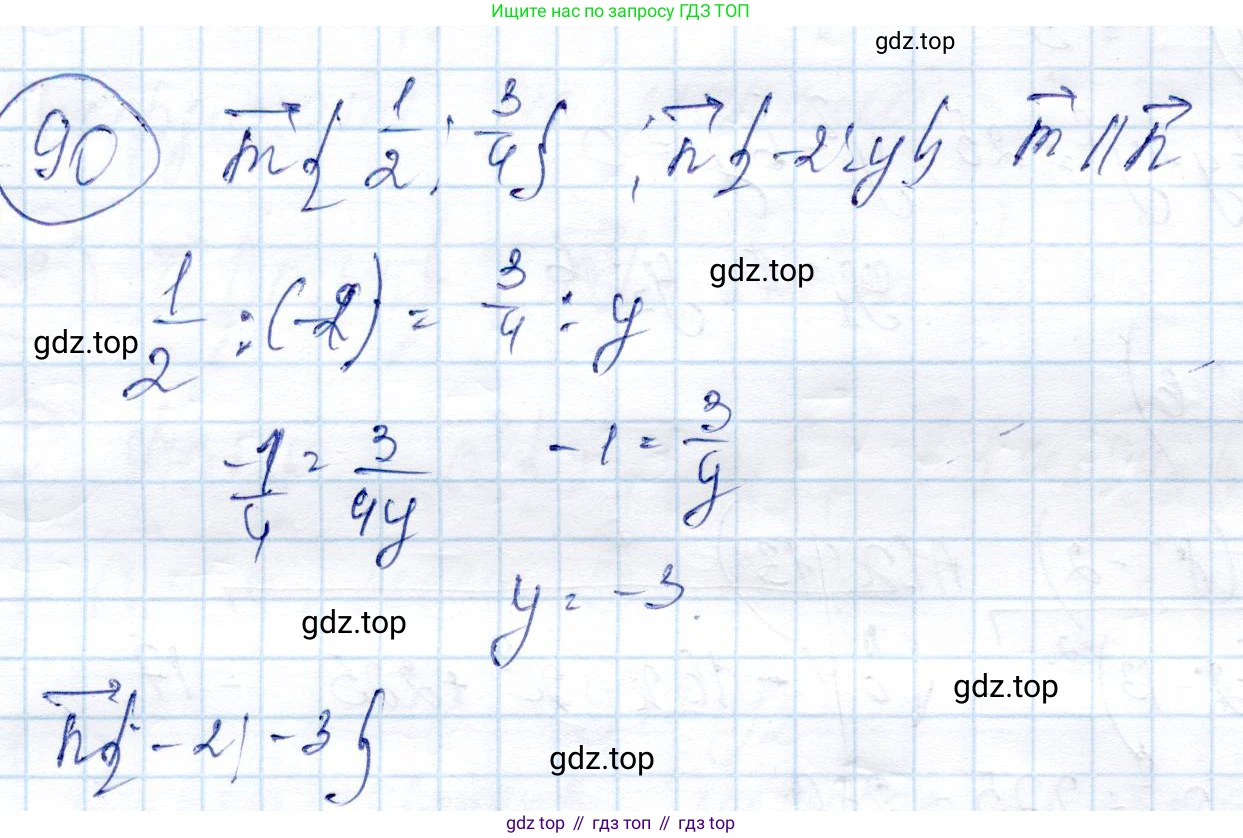 Ищите нас по запросу ГДЗ ТОП
gdz.top
90 m⃗{1/2; 3/4}; n⃗{-2; y} m⃗ || n⃗
gdz.top
1/2 : (-2) = 3/4 : y
gdz.top
-1/4 = 3/4y -1 = 3/y
y = -3.
gdz.top
gdz.top
n⃗{-2; -3}
gdz.top
gdz top // гдз топ // гдз top